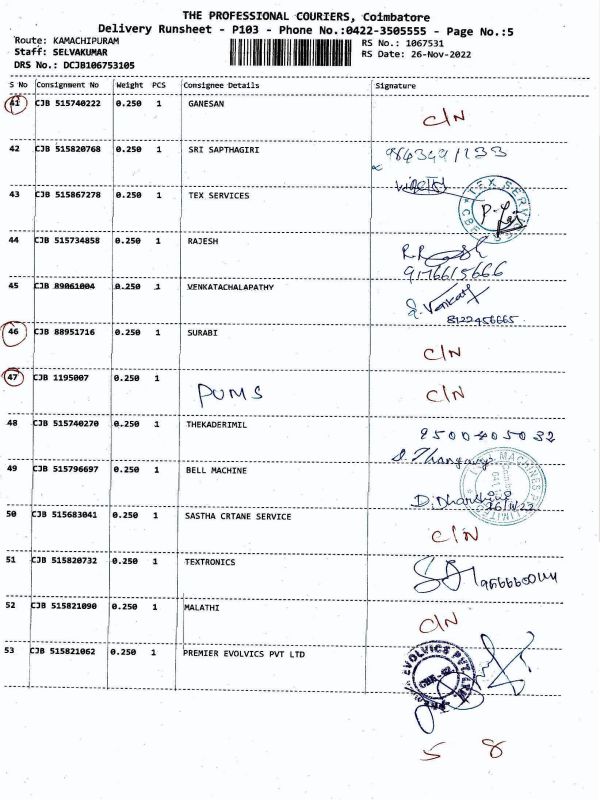 THE PROFESSIONAL COURIERS, Coimbatore
Delivery Runsheet - P103 - Phone No.:0422-3505555 - Page No.:5
Route: KAMACHIPURAM RS No.: 1067531
Staff: SELVAKUMAR RS Date: 26-Nov-2022
DRS No.: DCJB106753105
S No Consignment No Weight PCS Consignee Details Signature
41 CJB 515740222 0.250 1 GANESAN C/N
42 CJB 515820768 0.250 1 SRI SAPTHAGIRI
43 CJB 515867278 0.250 1 TEX SERVICES TEX SERVI
44 CJB 515734858 0.250 1 RAJESH
9176615666
45 CJB 89061004 0.250 1 VENKATACHALAPATHY
8122456665
46 CJB 88951716 0.250 1 SURABI C/N
47 CJB 1195007 0.250 1 PUMS C/N
48 CJB 515740270 0.250 1 THEKADERIMIL 9500405032
49 CJB 515796697 0.250 1 BELL MACHINE
50 CJB 515683041 0.250 1 SASTHA CRTANE SERVICE C/N
51 CJB 515820732 0.250 1 TEXTRONICS
52 CJB 515821090 0.250 1 MALATHI C/N
53 CJB 515821062 0.250 1 PREMIER EVOLVICS PVT LTD EVOLVICS PVT
5 8